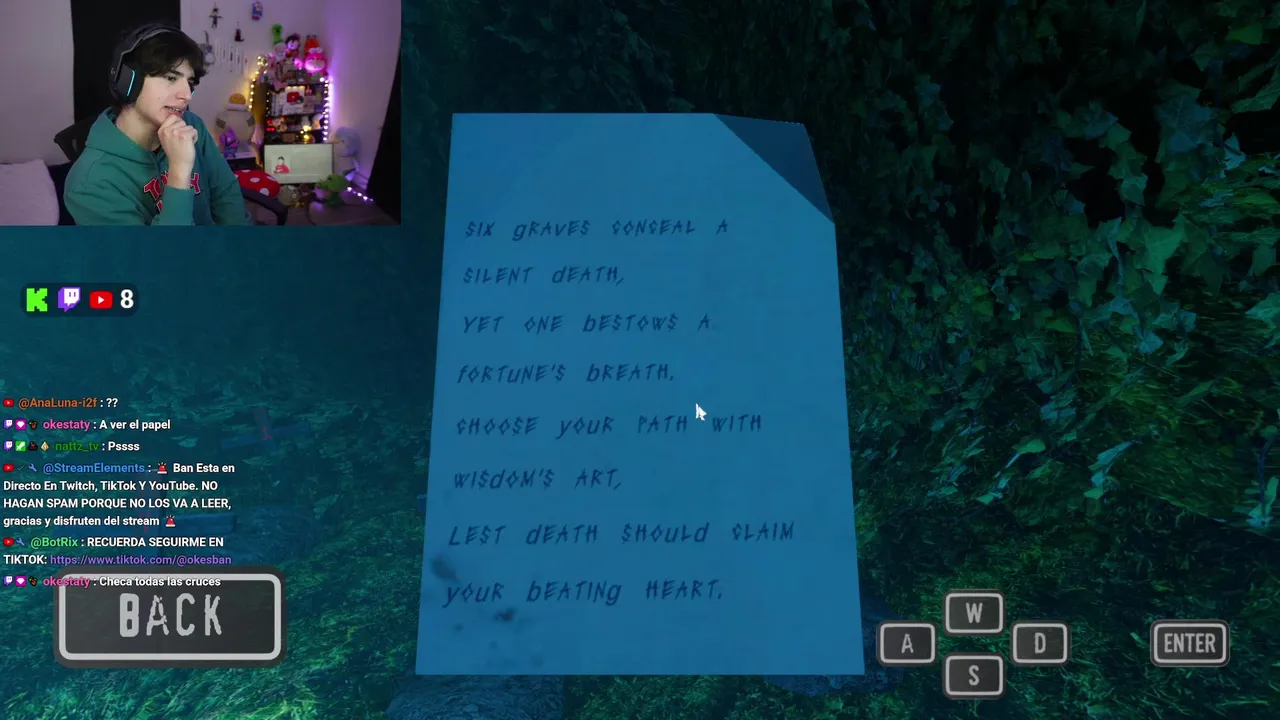 SIX GRAVES CONCEAL A
SILENT DEATH,
YET ONE BESTOWS A
FORTUNE'S BREATH.
CHOOSE YOUR PATH WITH
WISDOM'S ART,
LEST DEATH SHOULD CLAIM
YOUR BEATING HEART.
8
@AnaLuna-i2f : ??
okestaty : A ver el papel
nattz_tv : Pssss
@StreamElements : 🚨 Ban Esta en
Directo En Twitch, TikTok Y YouTube. NO
HAGAN SPAM PORQUE NO LOS VA A LEER,
gracias y disfruten del stream 🚨
@BotRix : RECUERDA SEGUIRME EN
TIKTOK: https://www.tiktok.com/@okesban
okestaty : Checa todas las cruces
BACK
W
A
S
D
ENTER